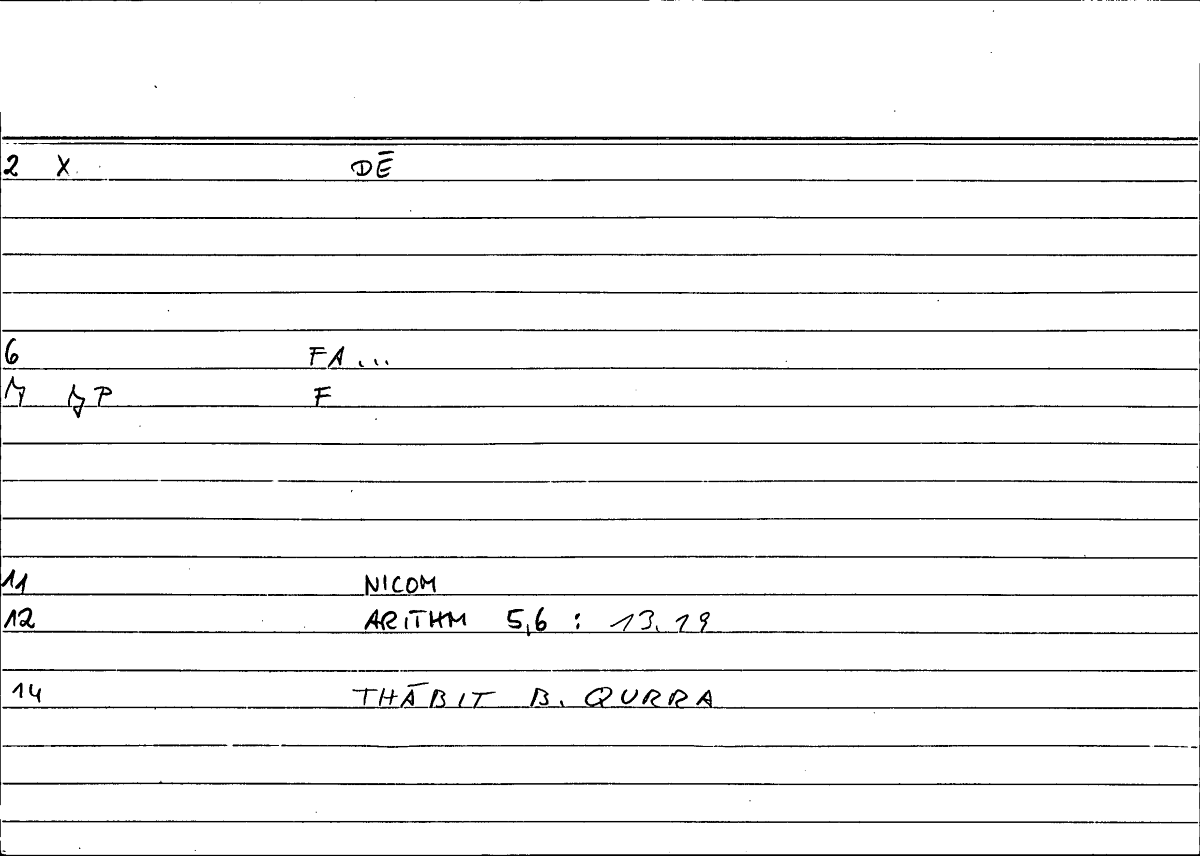 2 X. DĒ
6 FA...
P F
11 NICOM
12 ARITHM 5,6 : 13.19
14 THĀBIT B. QURRA